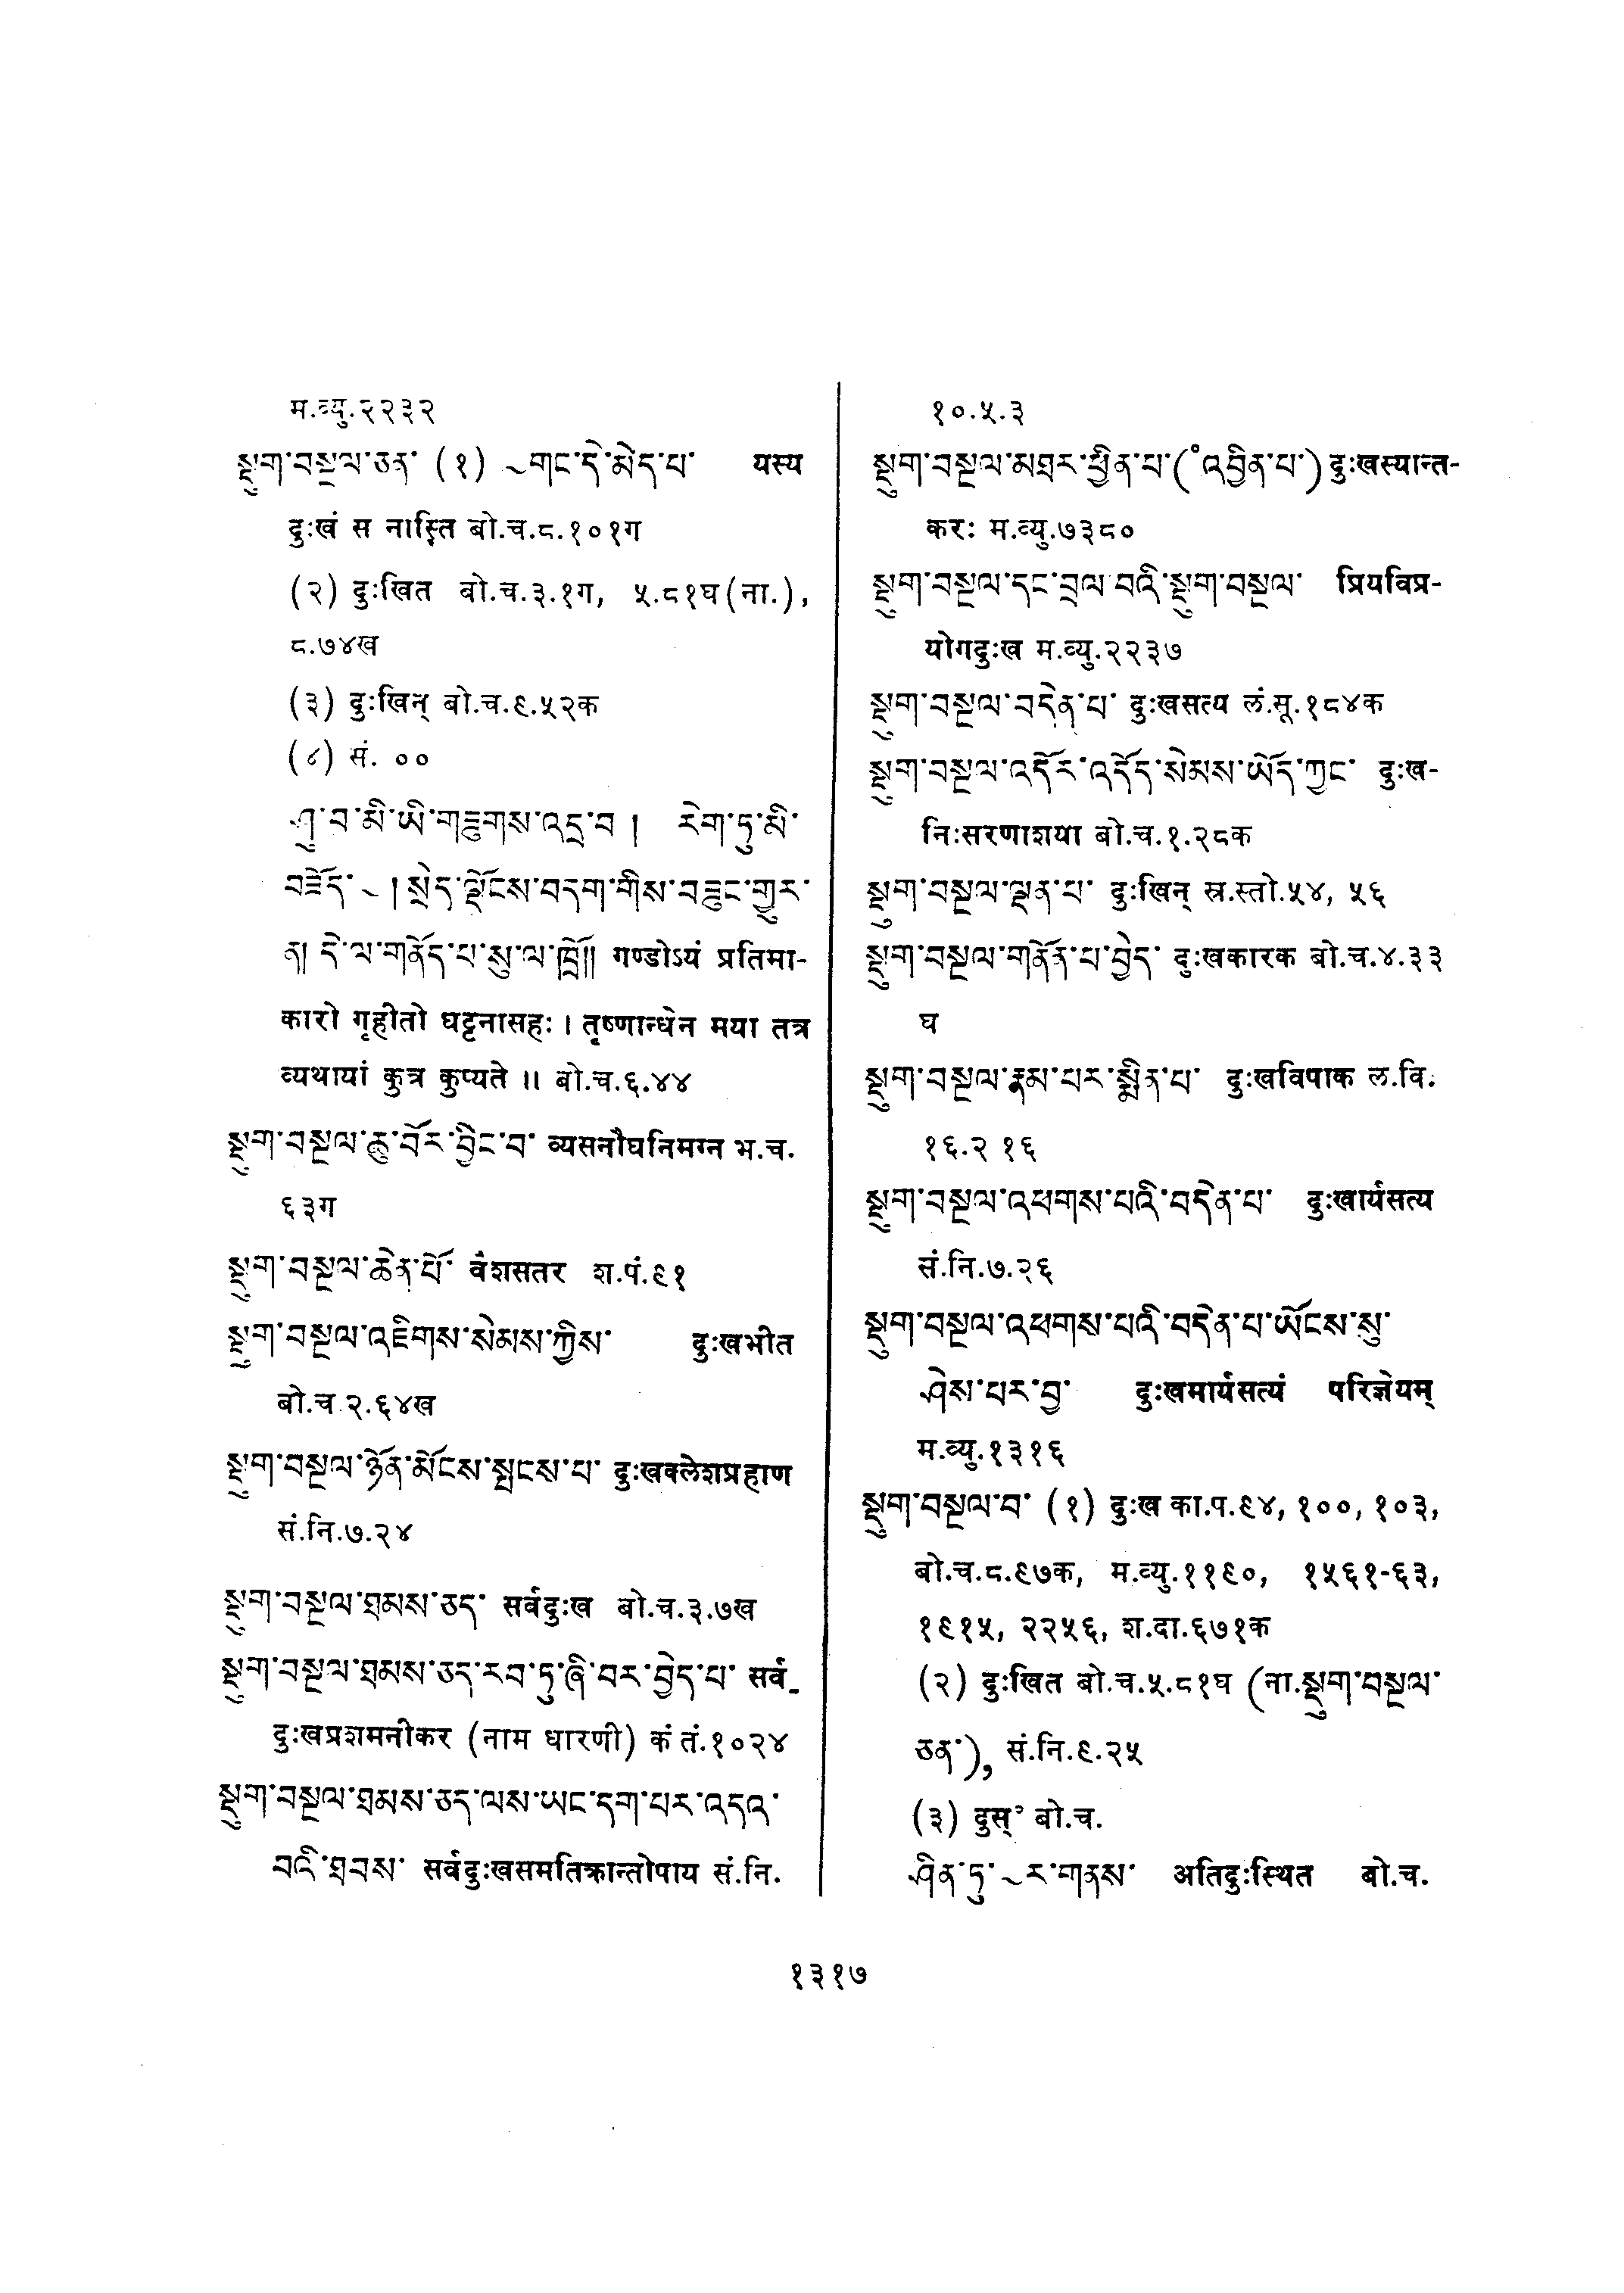 म.व्यु.२२३२
སྡུག་བསྔལ་ཅན་ (१) ~གང་དེ་མེད་པ་ यस्य
दुःखं स नास्ति बो.च.८.१०१ग
(२) दुःखित बो.च.३.१ग, ५.८१घ(ना.),
८.७४ख
(३) दुःखिन् बो.च.९.५२क
(४) सं. ००
ཤུ་བ་མི་ཡི་གཟུགས་འདྲ་བ། རེག་ཏུ་མི་
བཟོད་ ~ །སྲེད་ལྡོངས་བདག་གིས་བཟུང་གྱུར་
ན། དེ་ལ་གནོད་པ་སུ་ལ་ཁྲོ།། गण्डोऽयं प्रतिमा-
कारो गृहीतो घट्टनासहः । तृष्णान्धेन मया तत्र
व्यथायां कुत्र कुप्यते ॥ बो.च.६.४४
སྡུག་བསྔལ་ཆུ་བོར་བྱིང་བ་ व्यसनौघनिमग्न भ.च.
६३ग
སྡུག་བསྔལ་ཆེན་པོ་ वैशसतर श.पं.९१
སྡུག་བསྔལ་འཇིགས་སེམས་ཀྱིས་ दुःखभीत
बो.च.२.६४ख
སྡུག་བསྔལ་ཉོན་མོངས་སྤངས་པ་ दुःखक्लेशप्रहाण
सं.नि.७.२४
སྡུག་བསྔལ་ཐམས་ཅད་ सर्वदुःख बो.च.३.७ख
སྡུག་བསྔལ་ཐམས་ཅད་རབ་ཏུ་ཞི་བར་བྱེད་པ་ सर्व-
दुःखप्रशमनीकर (नाम धारणी) कं तं.१०२४
སྡུག་བསྔལ་ཐམས་ཅད་ལས་ཡང་དག་པར་འདའ་
བའི་ཐབས་ सर्वदुःखसमतिक्रान्तोपाय सं.नि.
१०.५.३
སྡུག་བསྔལ་མཐར་ཕྱིན་པ་(°འབྱིན་པ་) दुःखस्यान्त-
करः म.व्यु.७३८०
སྡུག་བསྔལ་དང་བྲལ་བའི་སྡུག་བསྔལ་ प्रियविप्र-
योगदुःख म.व्यु.२२३७
སྡུག་བསྔལ་བདེན་པ་ दुःखसत्य लं.सू.१८४क
སྡུག་བསྔལ་འདོར་འདོད་སེམས་ཡོད་ཀྱང་ दुःख-
निःसरणाशया बो.च.१.२८क
སྡུག་བསྔལ་ལྡན་པ་ दुःखिन् स्र.स्तो.५४, ५६
སྡུག་བསྔལ་གནོན་པ་བྱེད་ दुःखकारक बो.च.४.३३
घ
སྡུག་བསྔལ་རྣམ་པར་སྨིན་པ་ दुःखविपाक ल.वि.
१६.२१६
སྡུག་བསྔལ་འཕགས་པའི་བདེན་པ་ दुःखार्यसत्य
सं.नि.७.२६
སྡུག་བསྔལ་འཕགས་པའི་བདེན་པ་ཡོངས་སུ་
ཤེས་པར་བྱ་ दुःखमार्यसत्यं परिज्ञेयम्
म.व्यु.१३१६
སྡུག་བསྔལ་བ་ (१) दुःख का.प.९४, १००, १०३,
बो.च.८.९७क, म.व्यु.११९०, १५६१-६३,
१९१५, २२५६, श.दा.६७१क
(२) दुःखित बो.च.५.८१घ (ना.སྡུག་བསྔལ་
ཅན་), सं.नि.९.२५
(३) दुस्° बो.च.
ཤིན་ཏུ་~ར་གནས་ अतिदुःस्थित बो.च.
१३१७